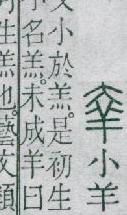 羍小羊
小於羔。是初生
名羔。未成羊曰
生羔也。藝文類